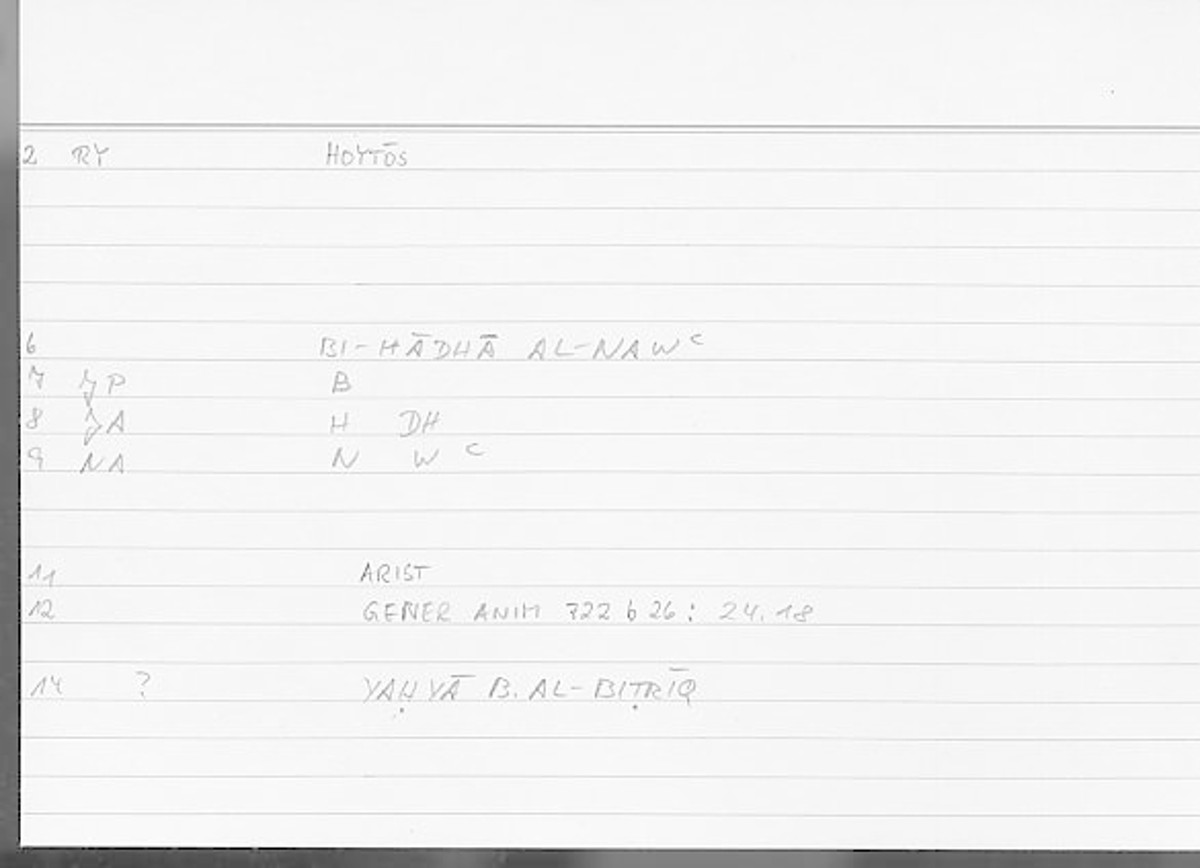 2 RY HOYTŌS
6 BI-HĀDHĀ AL-NAWᶜ
7 JP B
8 JA H DH
9 NA N W ᶜ
11 ARIST
12 GENER ANIM 722 b 26: 24.18
14 ? YAḤYĀ B. AL-BIṬRĪQ